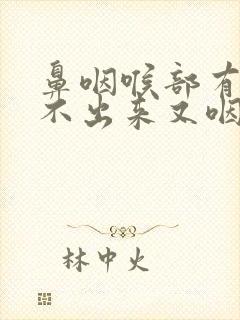 鼻咽喉部有
不出来又咽
林中火